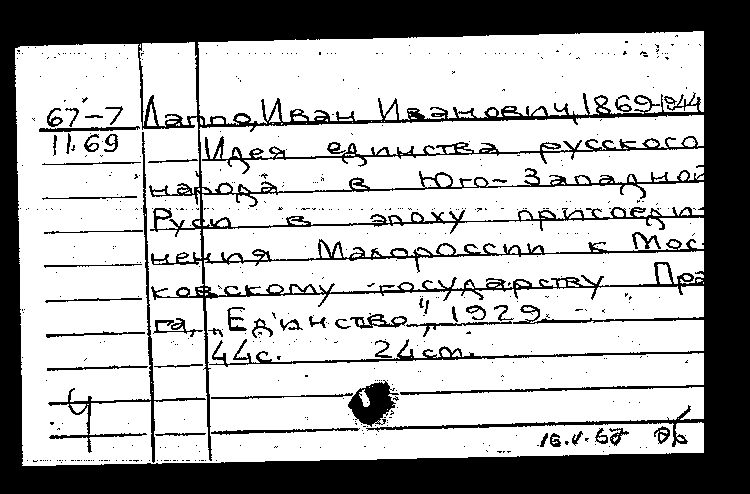 67-7 Лаппо, Иван Иванович, 1869-1944
11.69 Идея единства русского
народа в Юго-Западной
Руси в эпоху присоеди-
нения Малороссии к Мос-
ковскому государству Пра
га, „Единство", 1929.
44с. 24cm.
Ч
16.V.67